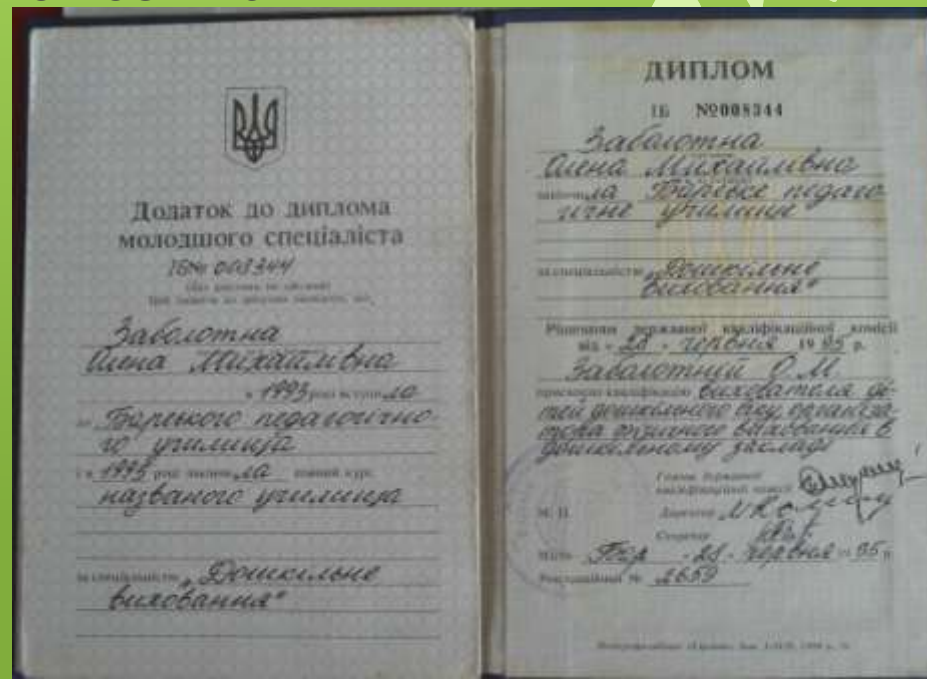 Додаток до диплома
молодшого спеціаліста
ІБ№ 008344
Заболотна
Олена Михайлівна
в 1993 році вступила
Барського педагогічно-
го училища
і в 1995 році закінчила повний курс
названого училища
за спеціальністю „Дошкільне
виховання"
ДИПЛОМ
ІБ №008344
Заболотна
Олена Михайлівна
закінчила Барське педаго-
гічне училище
за спеціальністю „Дошкільне
виховання"
Рішенням державної кваліфікаційної комісії
від - 28 - червня 1995 р.
Заболотній О.М.
присвоєно кваліфікацію вихователя ді-
тей дошкільного віку, організа-
тора фізичного виховання в
дошкільному закладі
Голова державної
кваліфікаційної комісії
М. П. Директор
Секретар
Місто Бар - 28 - червня 1995 р.
Реєстраційний № 2659